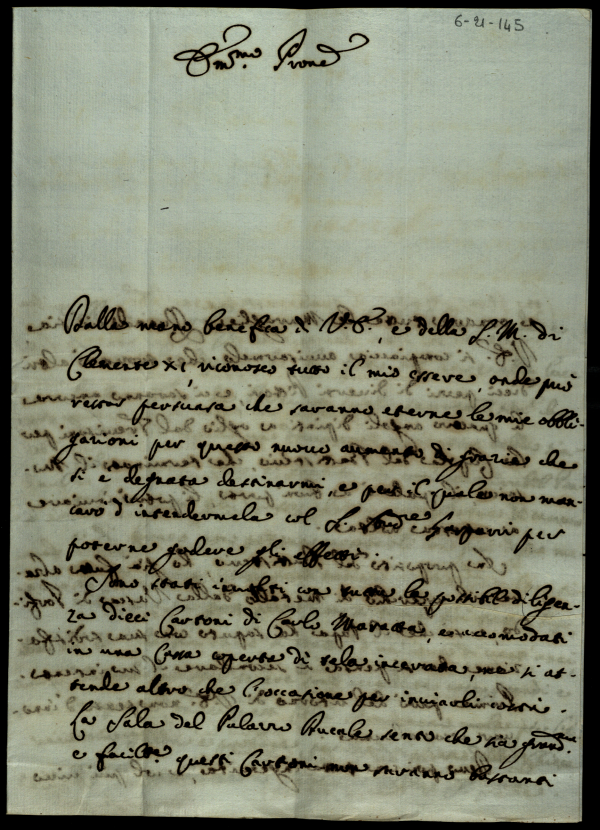 6-21-145
Em.mo Prone
Dalla mano benefica di V. S., e della S. M. di
Clemente XI, riconosco tutto il mio essere, onde può
restar persuasa che saranno eterne le mie obbli-
gazioni per questo nuovo aumento di grazia che
si è degnata destinarmi, e per il quale non man-
carò d'intendermela col S. per
poterne godere gli effetti.
Sono stati involti con tutta la possibile diligen-
za dieci Cartoni di Carlo Maratta, e accomodati
in una Cassa coperta di tela incerata, ne si at-
tende altro che l'occasione per inviarli costì.
La Sala del Palazzo Ducale sento che sia grand.ma
e facilte questi Cartoni non saranno bastanti